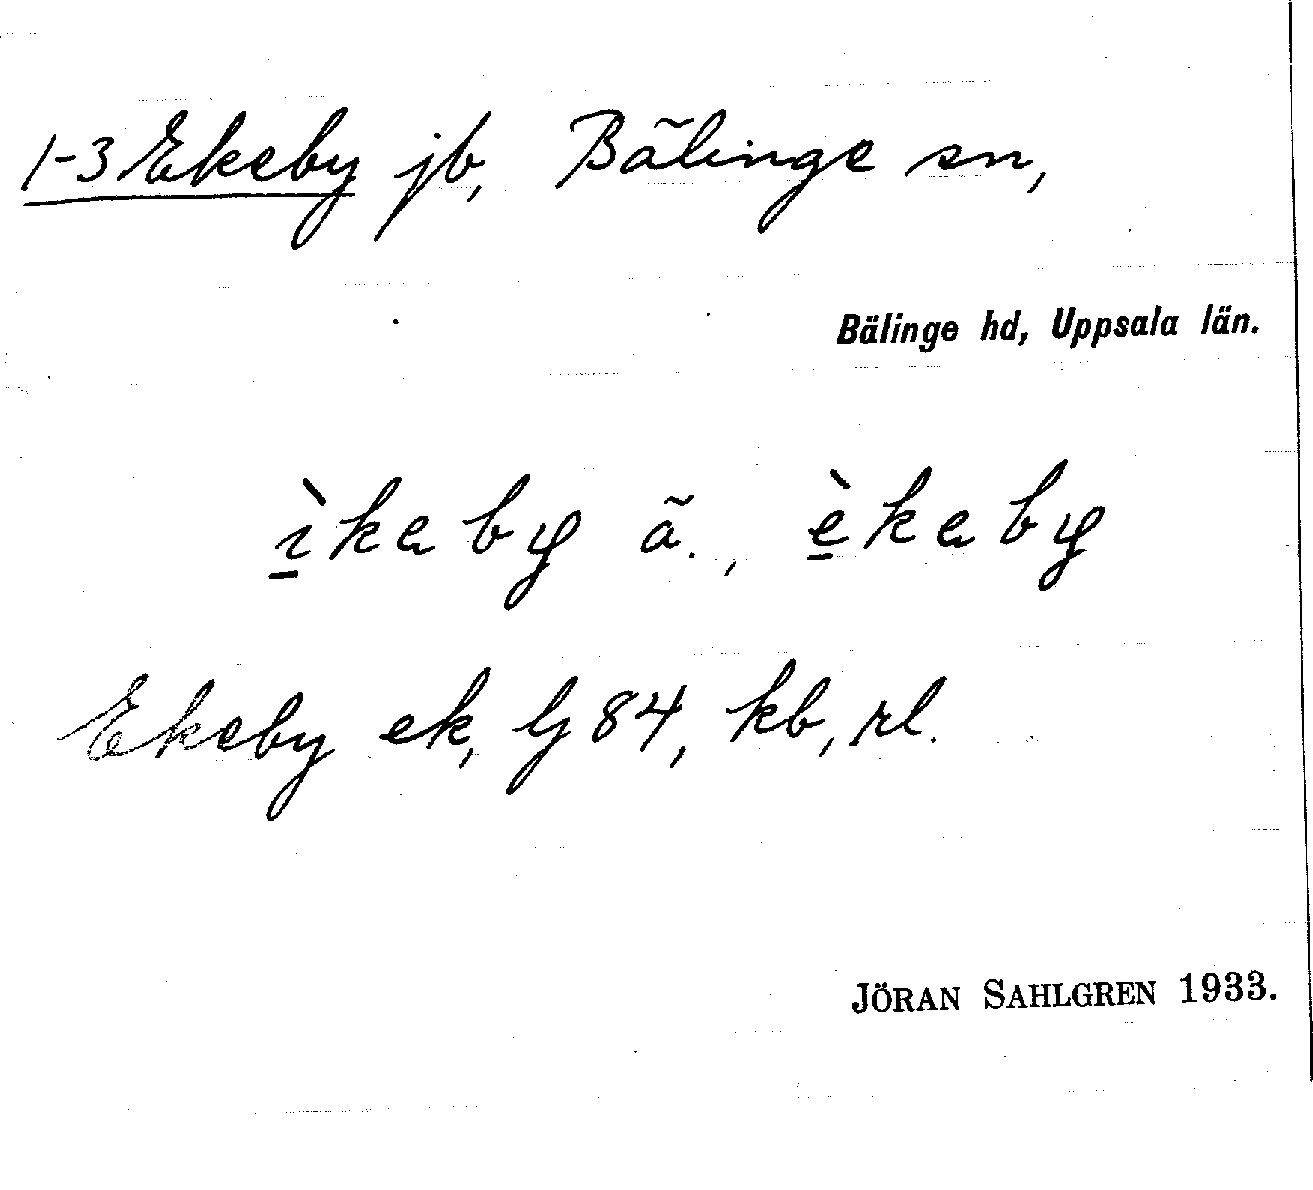 1-3 Ekeby jb, Bälinge sn,
Bälinge hd, Uppsala län.
ı̠̀kɐbყ ä., è̠kɐbყ
Ekeby ek, lj 84, kb, rl.
JÖRAN SAHLGREN 1933.